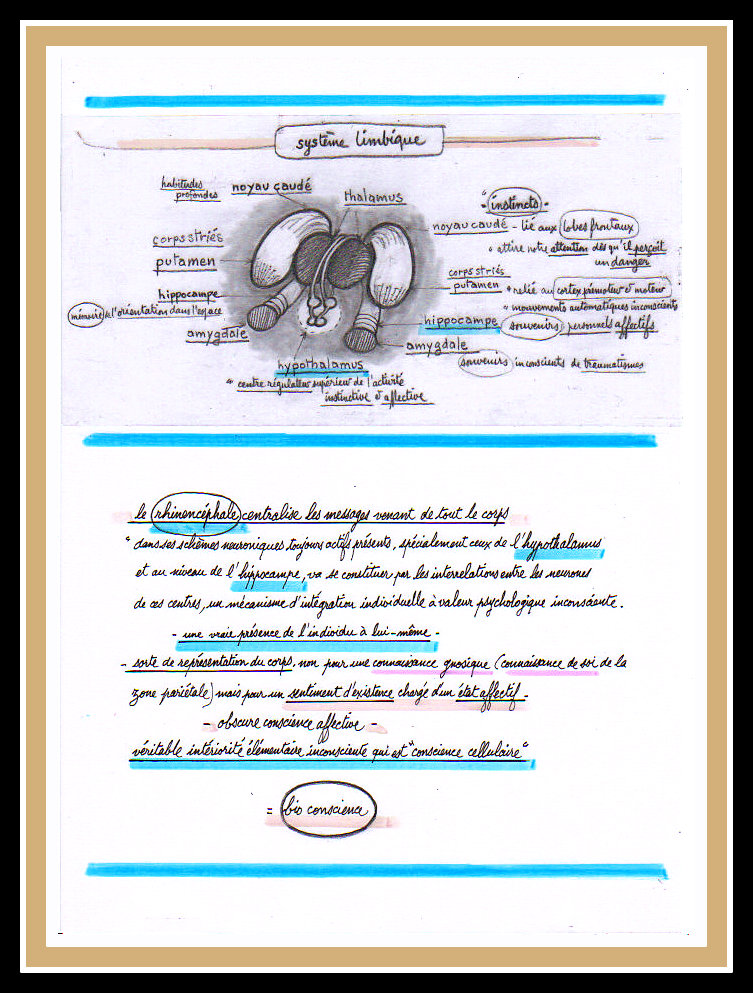 système limbique
habitudes
profondes
noyau caudé
thalamus
corps striés
putamen
hippocampe
mémoire de l'orientation dans l'espace
amygdale
hypothalamus
" centre régulateur supérieur de l'activité
instinctive et affective
- instincts -
noyau caudé - lié aux lobes frontaux
" attire notre attention dès qu'il perçoit
un danger
corps striés
putamen " relié au cortex prémoteur et moteur
" mouvements automatiques inconscients
hippocampe souvenirs personnels affectifs
amygdale
souvenirs inconscients de traumatismes
le rhinencéphale centralise les messages venant de tout le corps
" dans ses schèmes neuroniques toujours actifs présents, spécialement ceux de l'hypothalamus
et au niveau de l'hippocampe, va se constituer par les interrelations entre les neurones
de ces centres, un mécanisme d'intégration individuelle à valeur psychologique inconsciente.
- une vraie présence de l'individu à lui-même -
- sorte de représentation du corps, non pour une connaissance gnosique (connaissance de soi de la
zone pariétale) mais pour un sentiment d'existence chargé d'un état affectif -
- obscure conscience affective -
véritable intériorité élémentaire inconsciente qui est "conscience cellulaire"
= bio conscience